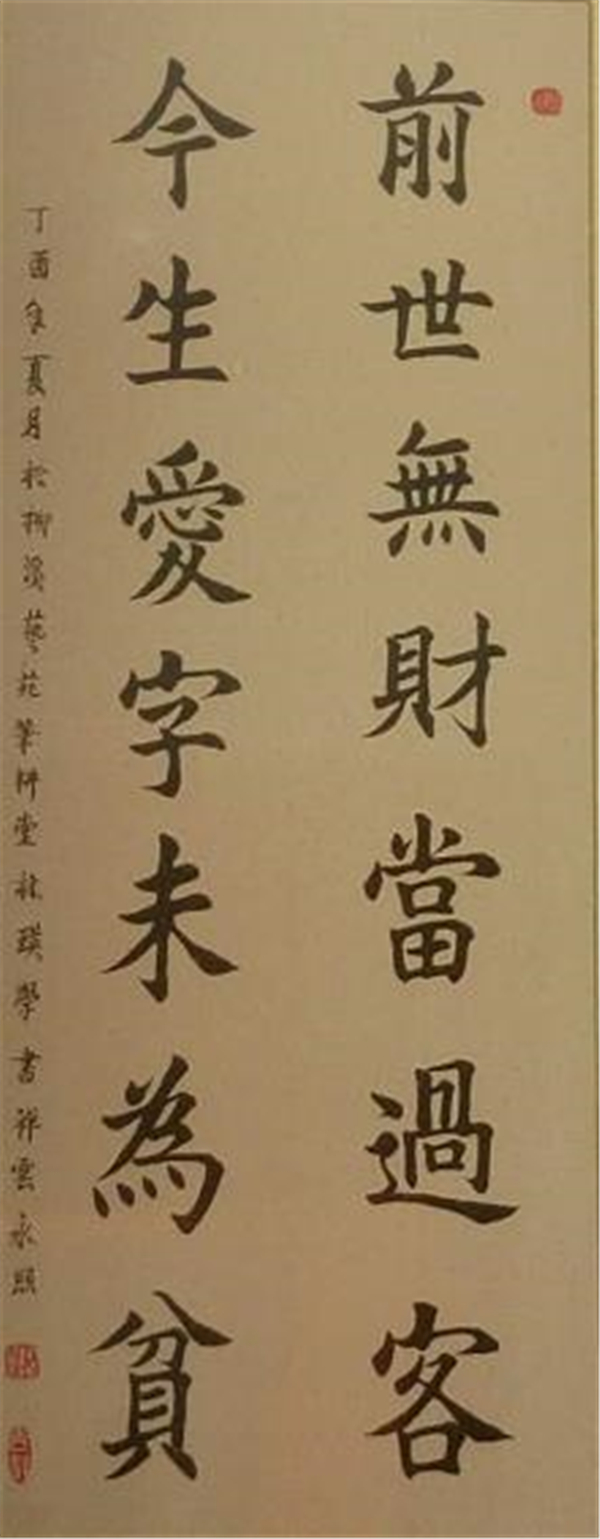 前世無財當過客
今生愛字未為貧
丁酉年夏月於柳溪藝苑筆耕堂林瑛學書祥雲永照